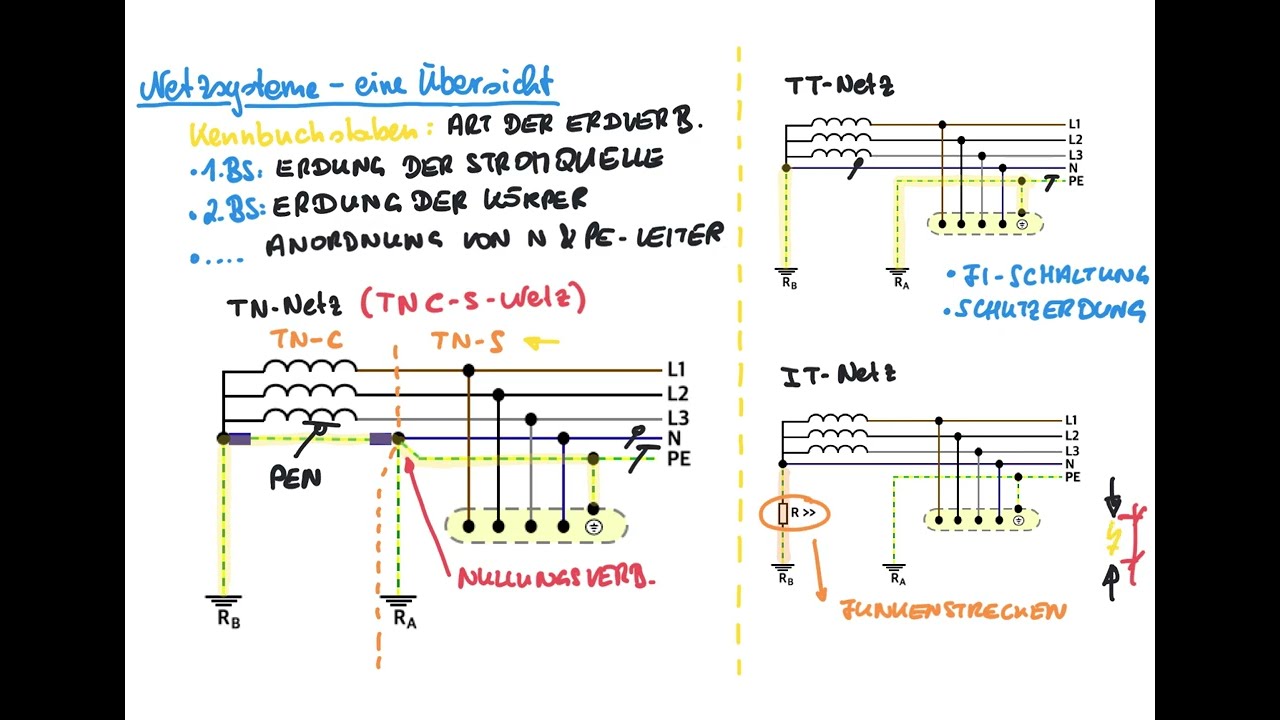 Netzsysteme - eine Übersicht
Kennbuchstaben: ART DER ERDVERB.
• 1.BS: ERDUNG DER STROMQUELLE
• 2.BS: ERDUNG DER KÖRPER
• .... ANORDNUNG VON N & PE-LEITER
TN-Netz (TN C-S-Netz)
TN-C TN-S
L1
L2
L3
N
PE
PEN
NULLUNGSVERB.
RB
RA
TT-Netz
L1
L2
L3
N
PE
RB
RA
• FI-SCHALTUNG
• SCHUTZERDUNG
IT-Netz
L1
L2
L3
N
PE
R >>
RB
RA
FUNKENSTRECKEN